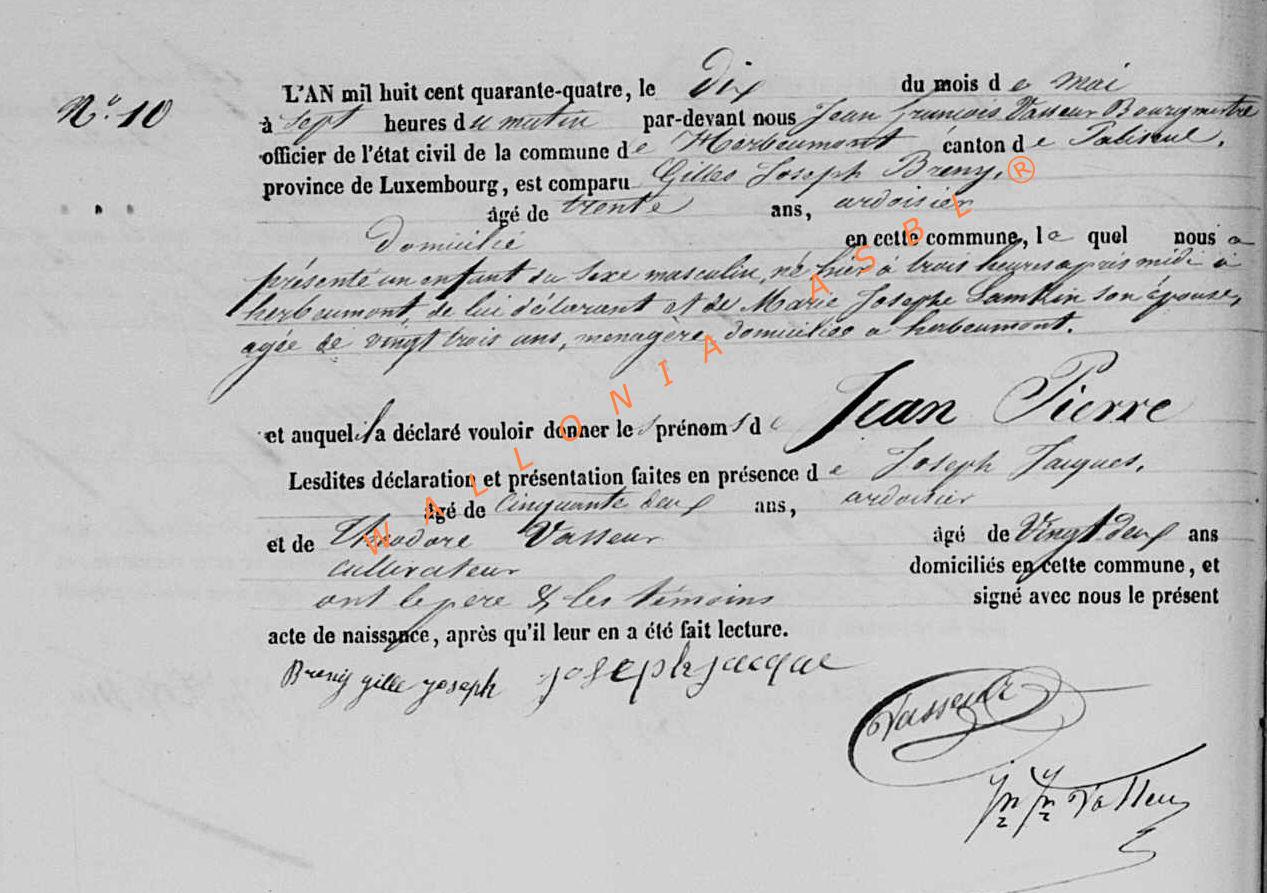 N.° 10
L'AN mil huit cent quarante-quatre, le dix du mois de mai
à sept heures du matin par-devant nous Jean françois Vasseur Bourgmestre
officier de l'état civil de la commune de Herbeumont canton de Paliseul,
province de Luxembourg, est comparu Gilles Joseph Breny,
âgé de trente ans, ardoisier
Domicilié en cette commune, le quel nous a
présenté un enfant du sexe masculin, né hier à trois heures après midi à
herbeumont, de lui déclarant et de Marie Josephe Lambin son épouse,
agée de vingt trois ans, menagere, domiciliée a herbeumont.
et auquel il a déclaré vouloir donner les prénoms de Jean Pierre
Lesdites déclaration et présentation faites en présence de Joseph Jacques,
âgé de cinquante deux ans, ardoisier
et de Théodore Vasseur âgé de vingt deux ans
cultivateur domiciliés en cette commune, et
ont le pere & les témoins signé avec nous le présent
acte de naissance, après qu'il leur en a été fait lecture.
Breny gille joseph joseph jacque
Vasseur
Vasseur
WALLONIA ASBL ®